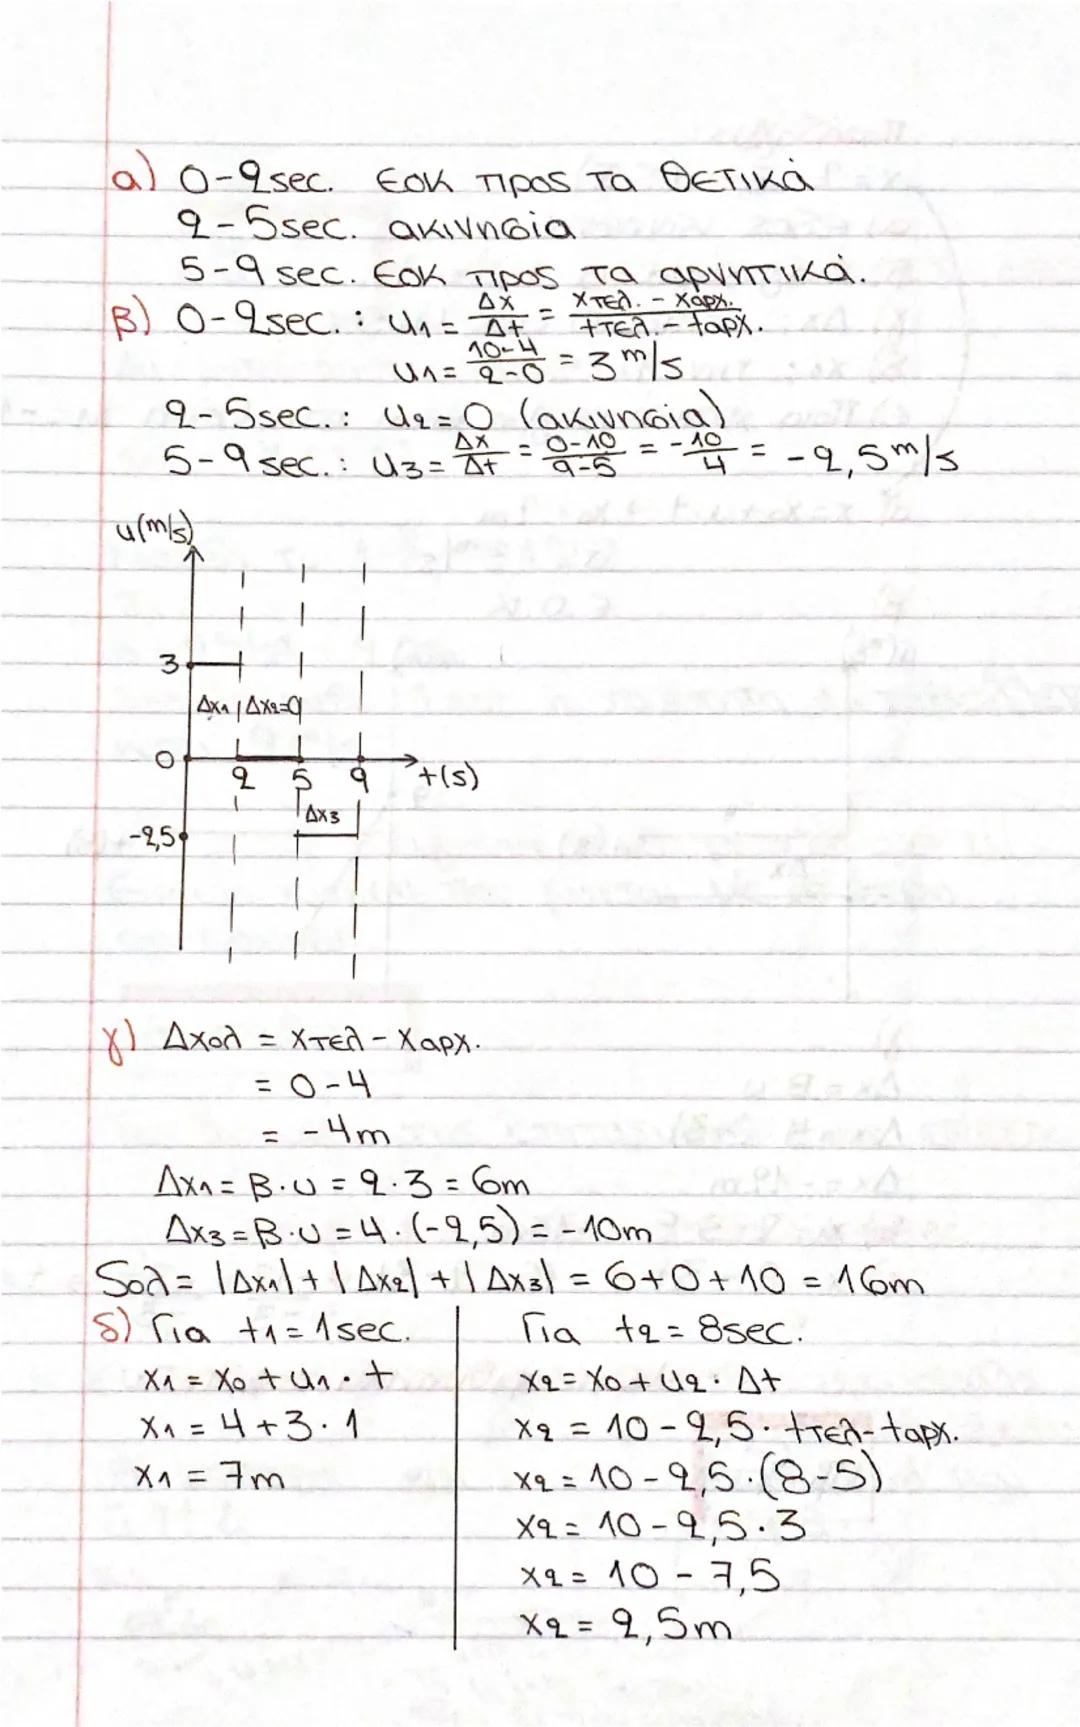 α) 0-2sec. ΕΟΚ προς τα θετικά
2-5sec. ακινησία
5-9 sec. ΕΟΚ προς τα αρνητιικά.
β) 0-2sec. : υ1 = Δx/Δt = xτελ. - xαρχ./tτελ. - tαρχ.
υ1 = 10-4/2-0 = 3 m/s
2-5sec.: υ2 = 0 (ακινησία)
5-9 sec.: υ3 = Δx/Δt = 0-10/9-5 = -10/4 = -2,5 m/s
υ(m/s)
3
Δx1 Δx2=0
0 2 5 9 t(s)
Δx3
-2,5
γ) Δxολ = xτελ - xαρχ.
= 0-4
= -4m
Δx1 = β·υ = 2·3 = 6m
Δx3 = β·υ = 4·(-2,5) = -10m
Sολ = |Δx1| + |Δx2| + |Δx3| = 6+0+10 = 16m
δ) Για t1 = 1sec.
x1 = x0 + υ1·t
x1 = 4+3·1
x1 = 7m
Για t2 = 8sec.
x2 = x0 + υ2·Δt
x2 = 10 - 2,5·tτελ - tαρχ.
x2 = 10 - 2,5·(8-5)
x2 = 10 - 2,5·3
x2 = 10 - 7,5
x2 = 2,5m